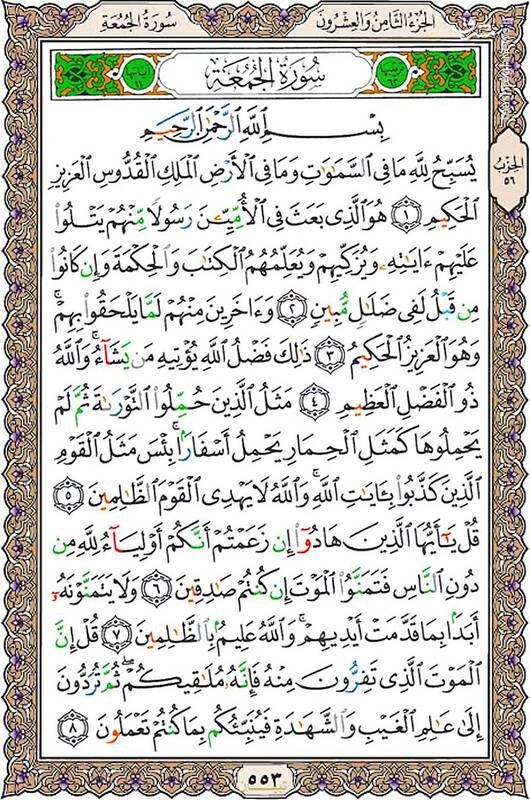 الجزء الثامن والعشرون
سورة الجمعة
ترتيبها ٦٢
سُورَةُ الْجُمُعَةِ
آياتها ١١
بِسْمِ ٱللَّهِ ٱلرَّحْمَٰنِ ٱلرَّحِيمِ
يُسَبِّحُ لِلَّهِ مَا فِى ٱلسَّمَٰوَٰتِ وَمَا فِى ٱلْأَرْضِ ٱلْمَلِكِ ٱلْقُدُّوسِ ٱلْعَزِيزِ
ٱلْحَكِيمِ ١ هُوَ ٱلَّذِى بَعَثَ فِى ٱلْأُمِّيِّـۧنَ رَسُولًا مِّنْهُمْ يَتْلُوا۟
عَلَيْهِمْ ءَايَٰتِهِۦ وَيُزَكِّيهِمْ وَيُعَلِّمُهُمُ ٱلْكِتَٰبَ وَٱلْحِكْمَةَ وَإِن كَانُوا۟
مِن قَبْلُ لَفِى ضَلَٰلٍ مُّبِينٍ ٢ وَءَاخَرِينَ مِنْهُمْ لَمَّا يَلْحَقُوا۟ بِهِمْ ۚ
وَهُوَ ٱلْعَزِيزُ ٱلْحَكِيمُ ٣ ذَٰلِكَ فَضْلُ ٱللَّهِ يُؤْتِيهِ مَن يَشَآءُ ۚ وَٱللَّهُ
ذُو ٱلْفَضْلِ ٱلْعَظِيمِ ٤ مَثَلُ ٱلَّذِينَ حُمِّلُوا۟ ٱلتَّوْرَىٰةَ ثُمَّ لَمْ
يَحْمِلُوهَا كَمَثَلِ ٱلْحِمَارِ يَحْمِلُ أَسْفَارًۢا ۚ بِئْسَ مَثَلُ ٱلْقَوْمِ
ٱلَّذِينَ كَذَّبُوا۟ بِـَٔايَٰتِ ٱللَّهِ ۚ وَٱللَّهُ لَا يَهْدِى ٱلْقَوْمَ ٱلظَّٰلِمِينَ ٥
قُلْ يَٰٓأَيُّهَا ٱلَّذِينَ هَادُوٓا۟ إِن زَعَمْتُمْ أَنَّكُمْ أَوْلِيَآءُ لِلَّهِ مِن
دُونِ ٱلنَّاسِ فَتَمَنَّوُا۟ ٱلْمَوْتَ إِن كُنتُمْ صَٰدِقِينَ ٦ وَلَا يَتَمَنَّوْنَهُۥٓ
أَبَدًۢا بِمَا قَدَّمَتْ أَيْدِيهِمْ ۚ وَٱللَّهُ عَلِيمٌۢ بِٱلظَّٰلِمِينَ ٧ قُلْ إِنَّ
ٱلْمَوْتَ ٱلَّذِى تَفِرُّونَ مِنْهُ فَإِنَّهُۥ مُلَٰقِيكُمْ ۖ ثُمَّ تُرَدُّونَ
إِلَىٰ عَٰلِمِ ٱلْغَيْبِ وَٱلشَّهَٰدَةِ فَيُنَبِّئُكُم بِمَا كُنتُمْ تَعْمَلُونَ ٨
الحزب
٥٦
٥٥٣